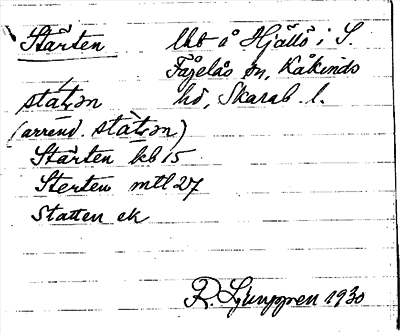 Stärten lht å Hjällö i S.
Fågelås sn, Kåkinds
stát̬ən hd, Skarab. l.
(arrend. stàt̬ən)
Stärten kb 15
Sterten mtl 27
Statten ek
R. Ljunggren 1930